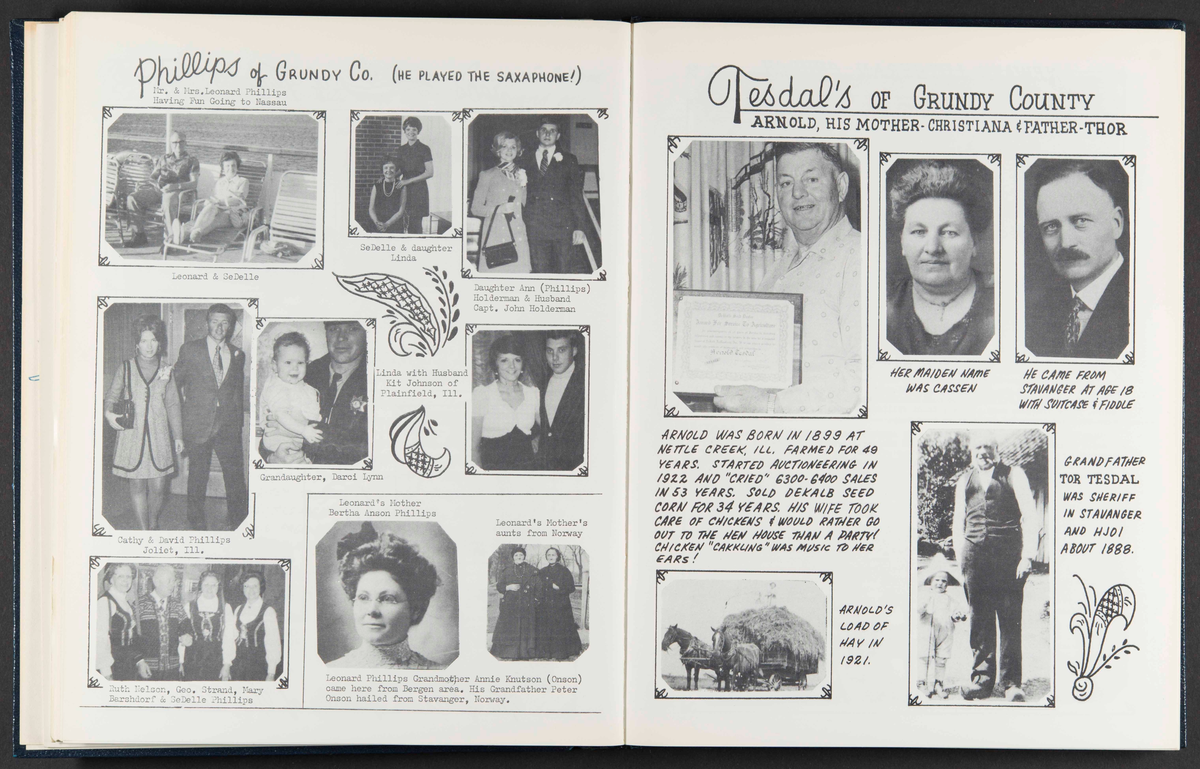 Phillips of GRUNDY CO. (HE PLAYED THE SAXAPHONE!)
Mr. & Mrs.Leonard Phillips
Having Fun Going to Nassau
Leonard & SeDelle
SeDelle & daughter
Linda
Daughter Ann (Phillips)
Holderman & Husband
Capt. John Holderman
Cathy & David Phillips
Joliet, Ill.
Grandaughter, Darci Lynn
Linda with Husband
Kit Johnson of
Plainfield, Ill.
Ruth Nelson, Geo. Strand, Mary
Barshdorf & SeDelle Phillips
Leonard's Mother
Bertha Anson Phillips
Leonard's Mother's
aunts from Norway
Leonard Phillips Grandmother Annie Knutson (Onson)
came here from Bergen area. His Grandfather Peter
Onson hailed from Stavanger, Norway.
Tesdal's OF GRUNDY COUNTY
ARNOLD, HIS MOTHER-CHRISTIANA & FATHER-THOR
HER MAIDEN NAME
WAS CASSEN
HE CAME FROM
STAVANGER AT AGE 18
WITH SUITCASE & FIDDLE
ARNOLD WAS BORN IN 1899 AT
NETTLE CREEK, ILL. FARMED FOR 49
YEARS. STARTED AUCTIONEERING IN
1922 AND "CRIED" 6300-6400 SALES
IN 53 YEARS. SOLD DEKALB SEED
CORN FOR 34 YEARS. HIS WIFE TOOK
CARE OF CHICKENS & WOULD RATHER GO
OUT TO THE HEN HOUSE THAN A PARTY!
CHICKEN "CAKKLING" WAS MUSIC TO HER
EARS!
ARNOLD'S
LOAD OF
HAY IN
1921.
GRANDFATHER
TOR TESDAL
WAS SHERIFF
IN STAVANGER
AND HJOI
ABOUT 1888.